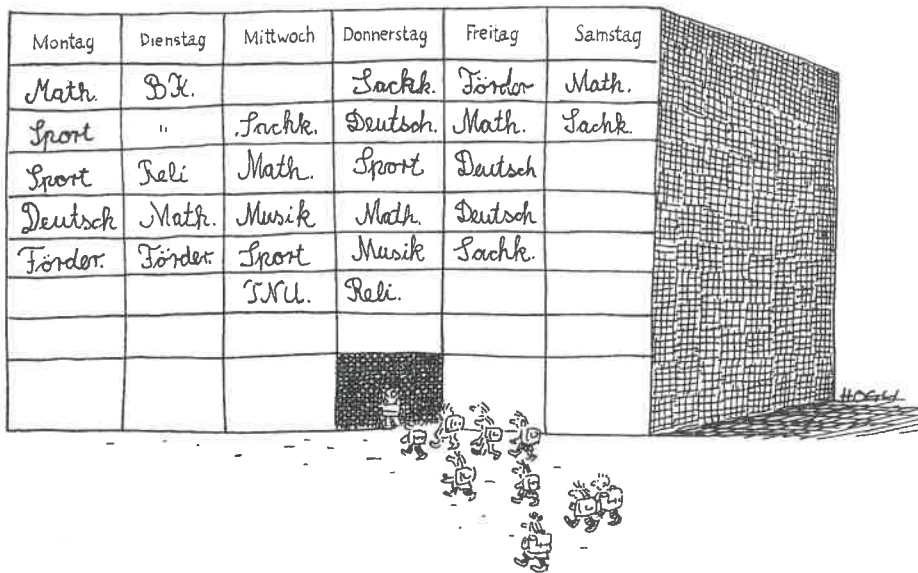 Montag Dienstag Mittwoch Donnerstag Freitag Samstag
Math. BK. Sachk. Förder Math.
Sport " Sachk. Deutsch. Math. Sachk.
Sport Reli Math. Sport Deutsch
Deutsch Math. Musik Math. Deutsch
Förder. Förder Sport Musik Sachk.
TNU. Reli.
HOGLI